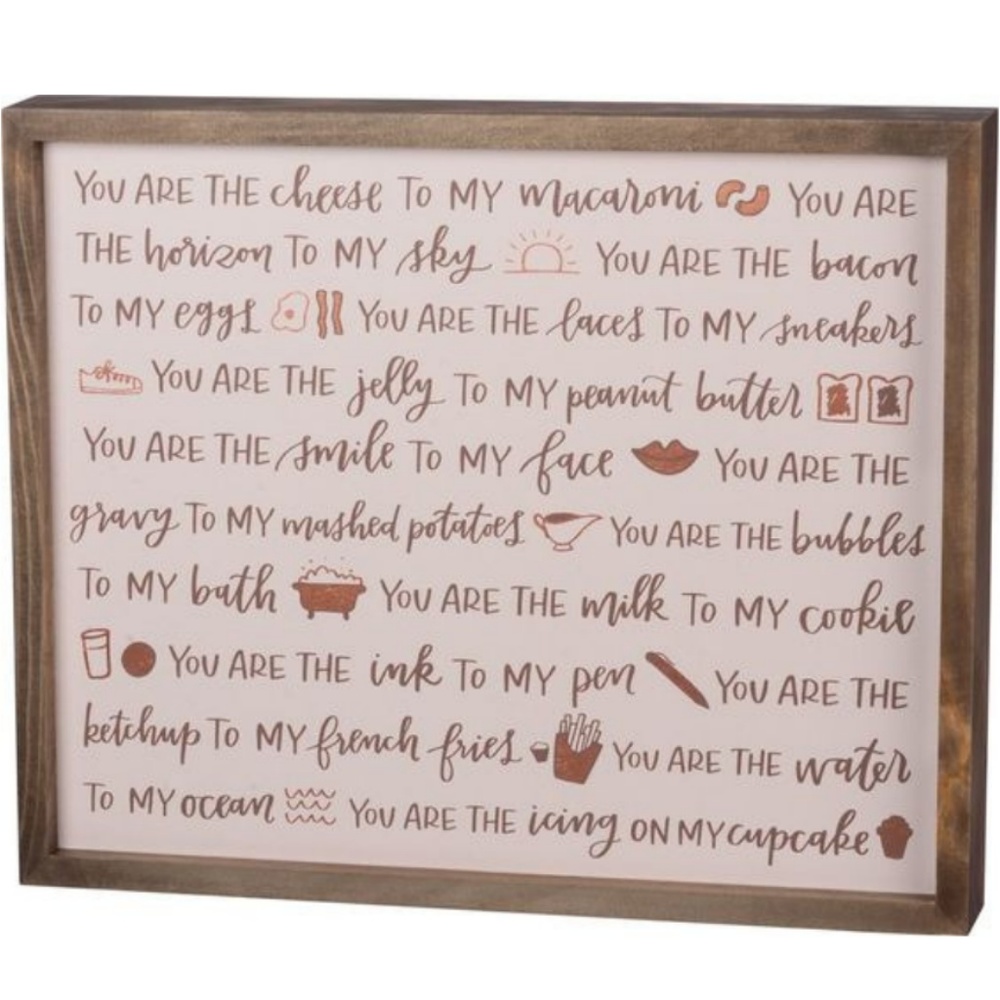 YOU ARE THE cheese TO MY macaroni YOU ARE
THE horizon TO MY sky YOU ARE THE bacon
TO MY eggs YOU ARE THE laces TO MY sneakers
YOU ARE THE jelly TO MY peanut butter
YOU ARE THE smile TO MY face YOU ARE THE
gravy TO MY mashed potatoes YOU ARE THE bubbles
TO MY bath YOU ARE THE milk TO MY cookie
YOU ARE THE ink TO MY pen YOU ARE THE
ketchup TO MY french fries YOU ARE THE water
TO MY ocean YOU ARE THE icing ON MY cupcake